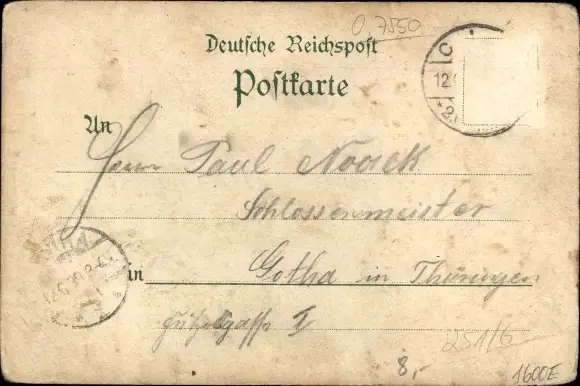 O 7550
Deutsche Reichspost
Postkarte
C
12.
An
Herrn Paul Noack
Schlossermeister
in Gotha in Thüringen
I
251/6
8,-
1600E